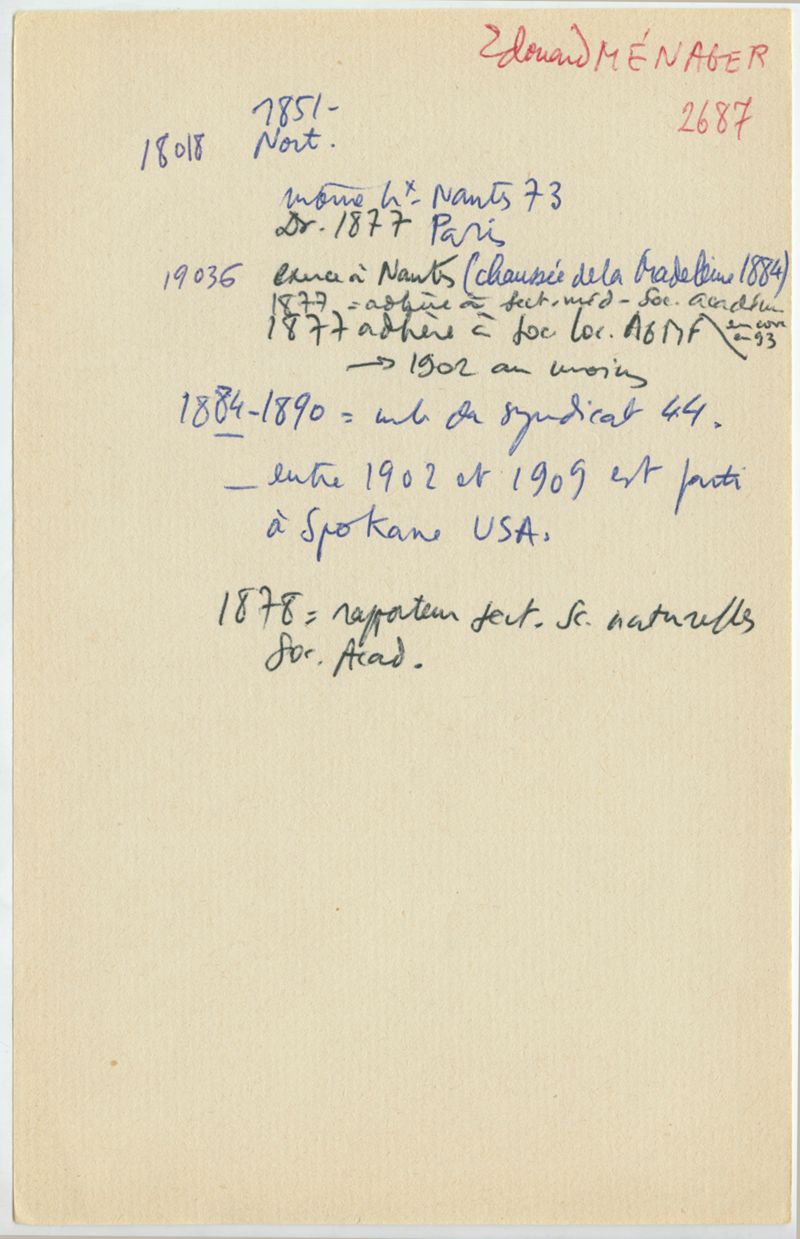 Edouard MÉNAGER
2687
1851-
18018 Nort.
hx - Nantes 73
Dr. 1877 Paris
19036 exerce à Nantes (chaussée de la Madeleine 1884)
1877 = adhère à sect. méd - Soc. académ
1877 adhère à Soc loc. AGMF encore en 93
→ 1902 au moins
1884-1890 = mb du syndicat 44.
— entre 1902 et 1909 est parti
à Spokane USA.
1878 = rapporteur sect. Sc. naturelles
Soc. Acad.